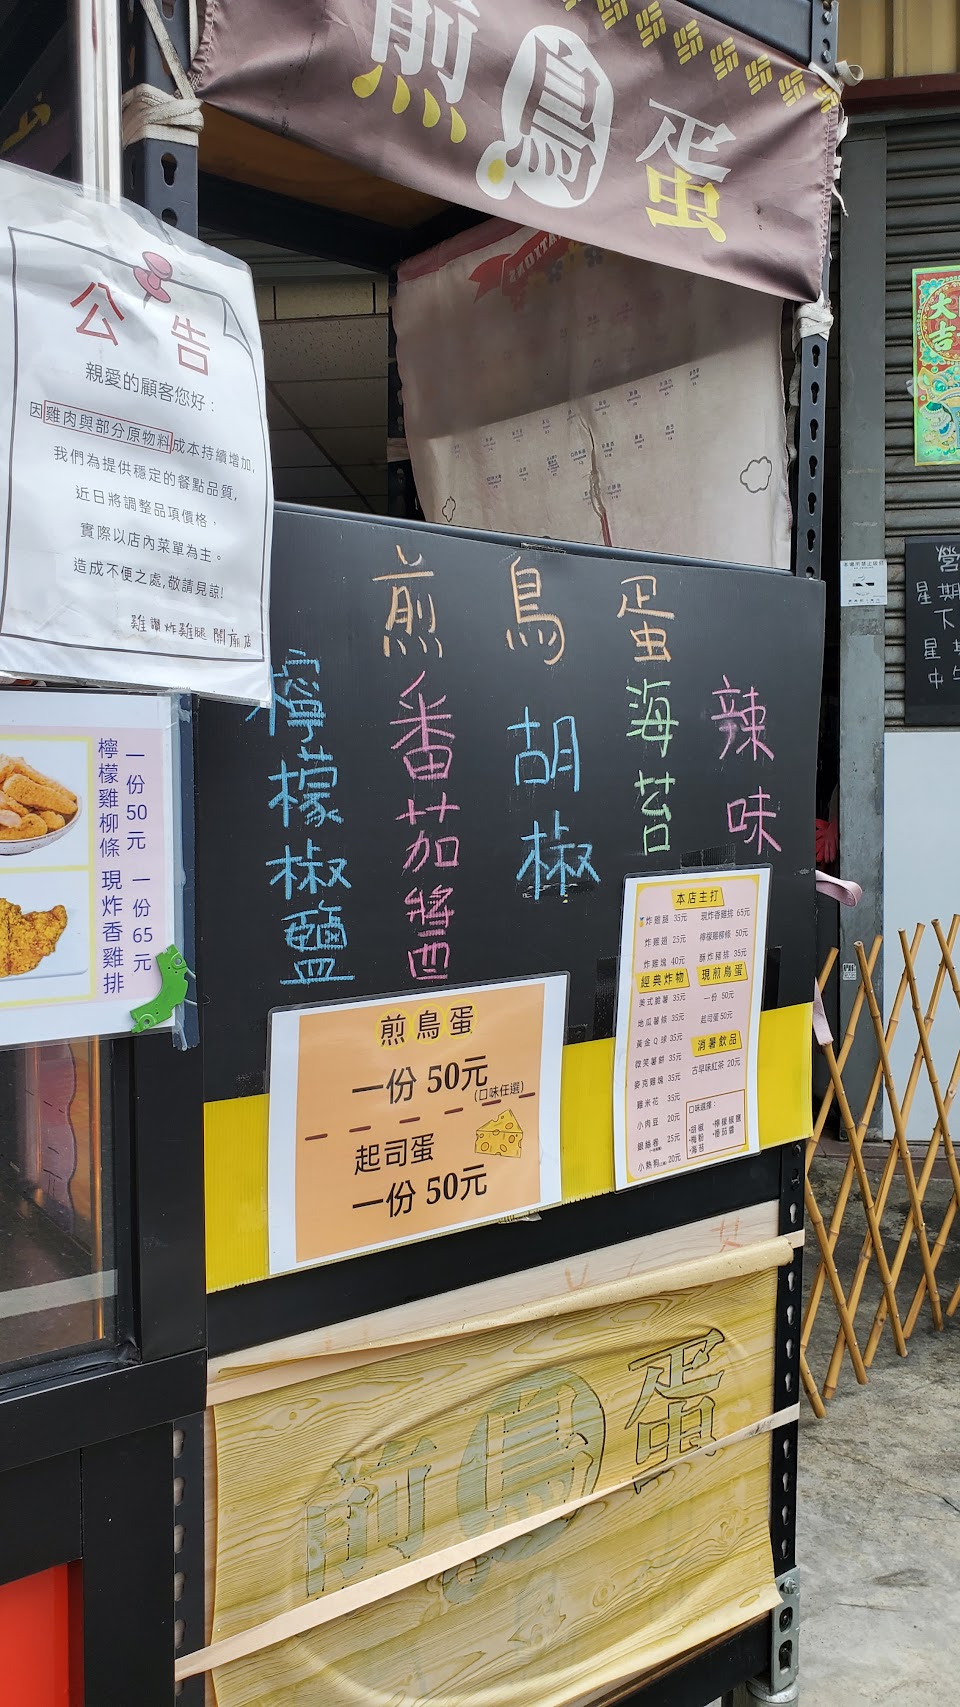 煎鳥蛋
公告
親愛的顧客您好：
因雞肉與部分原物料成本持續增加,
我們為提供穩定的餐點品質,
近日將調整品項價格，
實際以店內菜單為主。
造成不便之處,敬請見諒!
雞讚炸雞腿 關廟店
大吉
煎鳥蛋
檸檬椒鹽
番茄醬
胡椒
海苔
辣味
檸檬雞柳條
一份50元
現炸香雞排
一份65元
煎鳥蛋
一份 50元
(口味任選)
起司蛋
一份 50元
本店主打
炸雞腿 35元
現炸香雞排 65元
炸雞翅 25元
檸檬雞柳條 50元
炸雞塊 40元
酥炸豬排 35元
經典炸物
現煎鳥蛋
美式脆薯 35元
一份 50元
地瓜薯條 35元
起司蛋 50元
黃金Q球 35元
消暑飲品
微笑薯餅 35元
古早味紅茶 20元
麥克雞塊 35元
雞米花 35元
小肉豆 20元
銀絲卷 25元
小熱狗 20元
口味選擇：
•胡椒
•檸檬椒鹽
•梅粉
•番茄醬
•海苔
煎鳥蛋